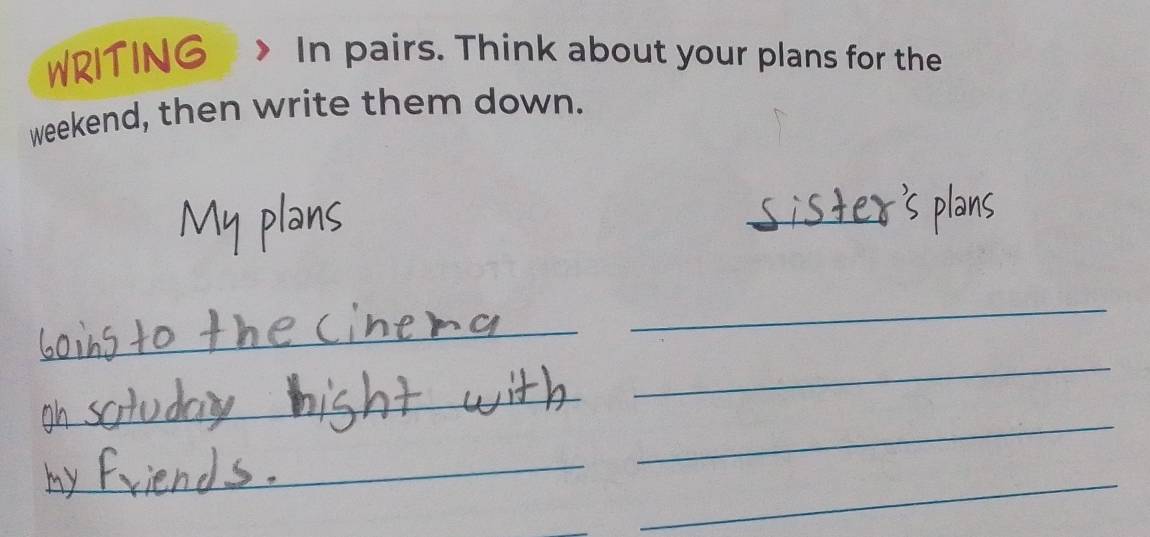 WRITING > In pairs. Think about your plans for the
weekend, then write them down.
My plans
sister's plans
Going to the cinema
on satuday night with
my Friends.